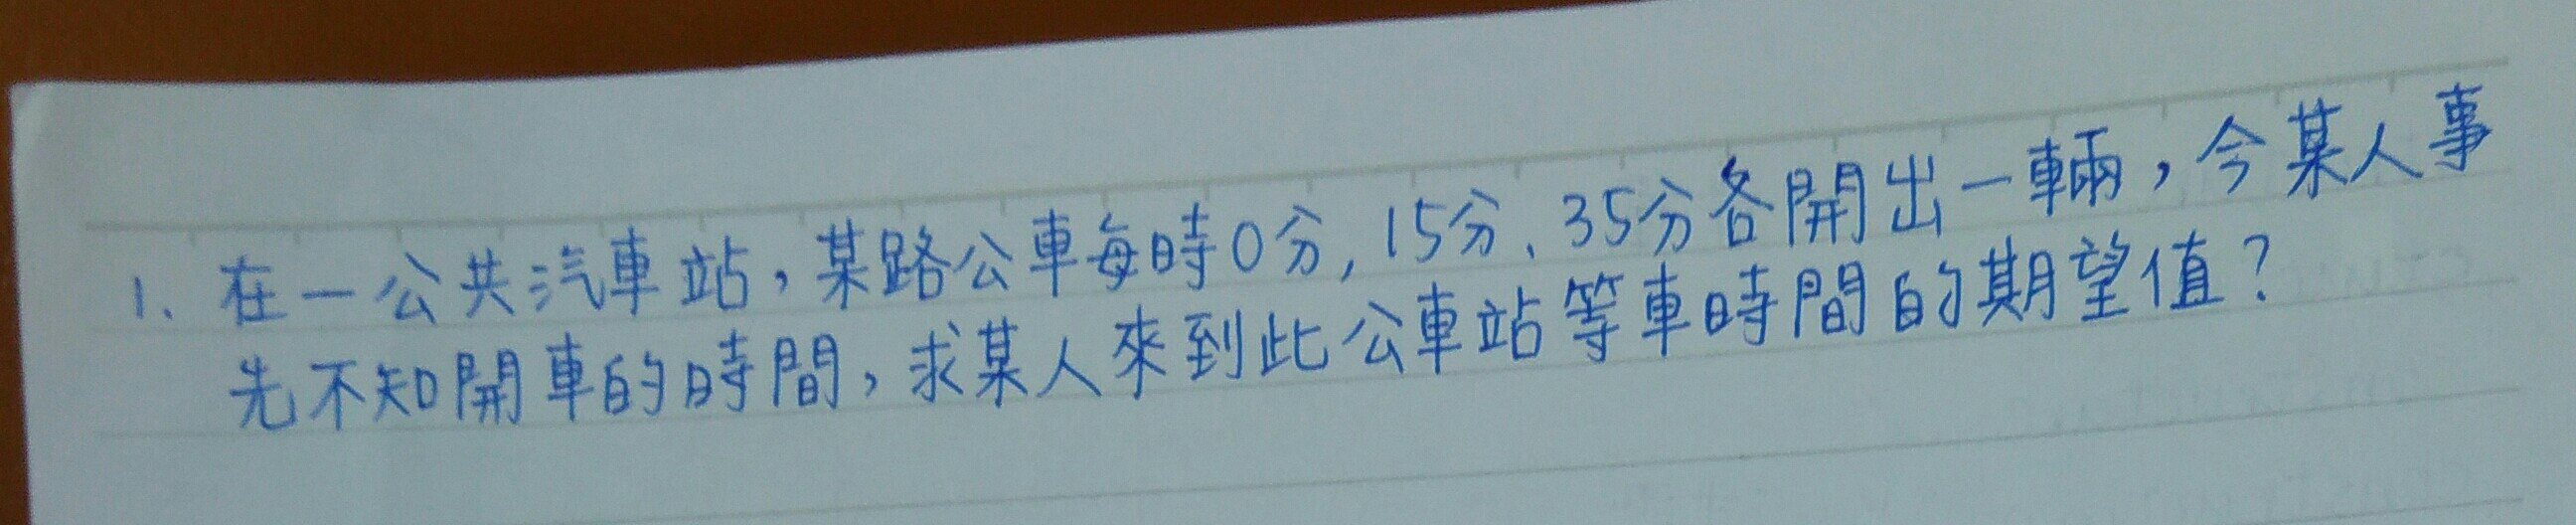 1. 在一公共汽車站，某路公車每時0分, 15分、35分各開出一輛，今某人事
先不知開車的時間，求某人來到此公車站等車時間的期望值？